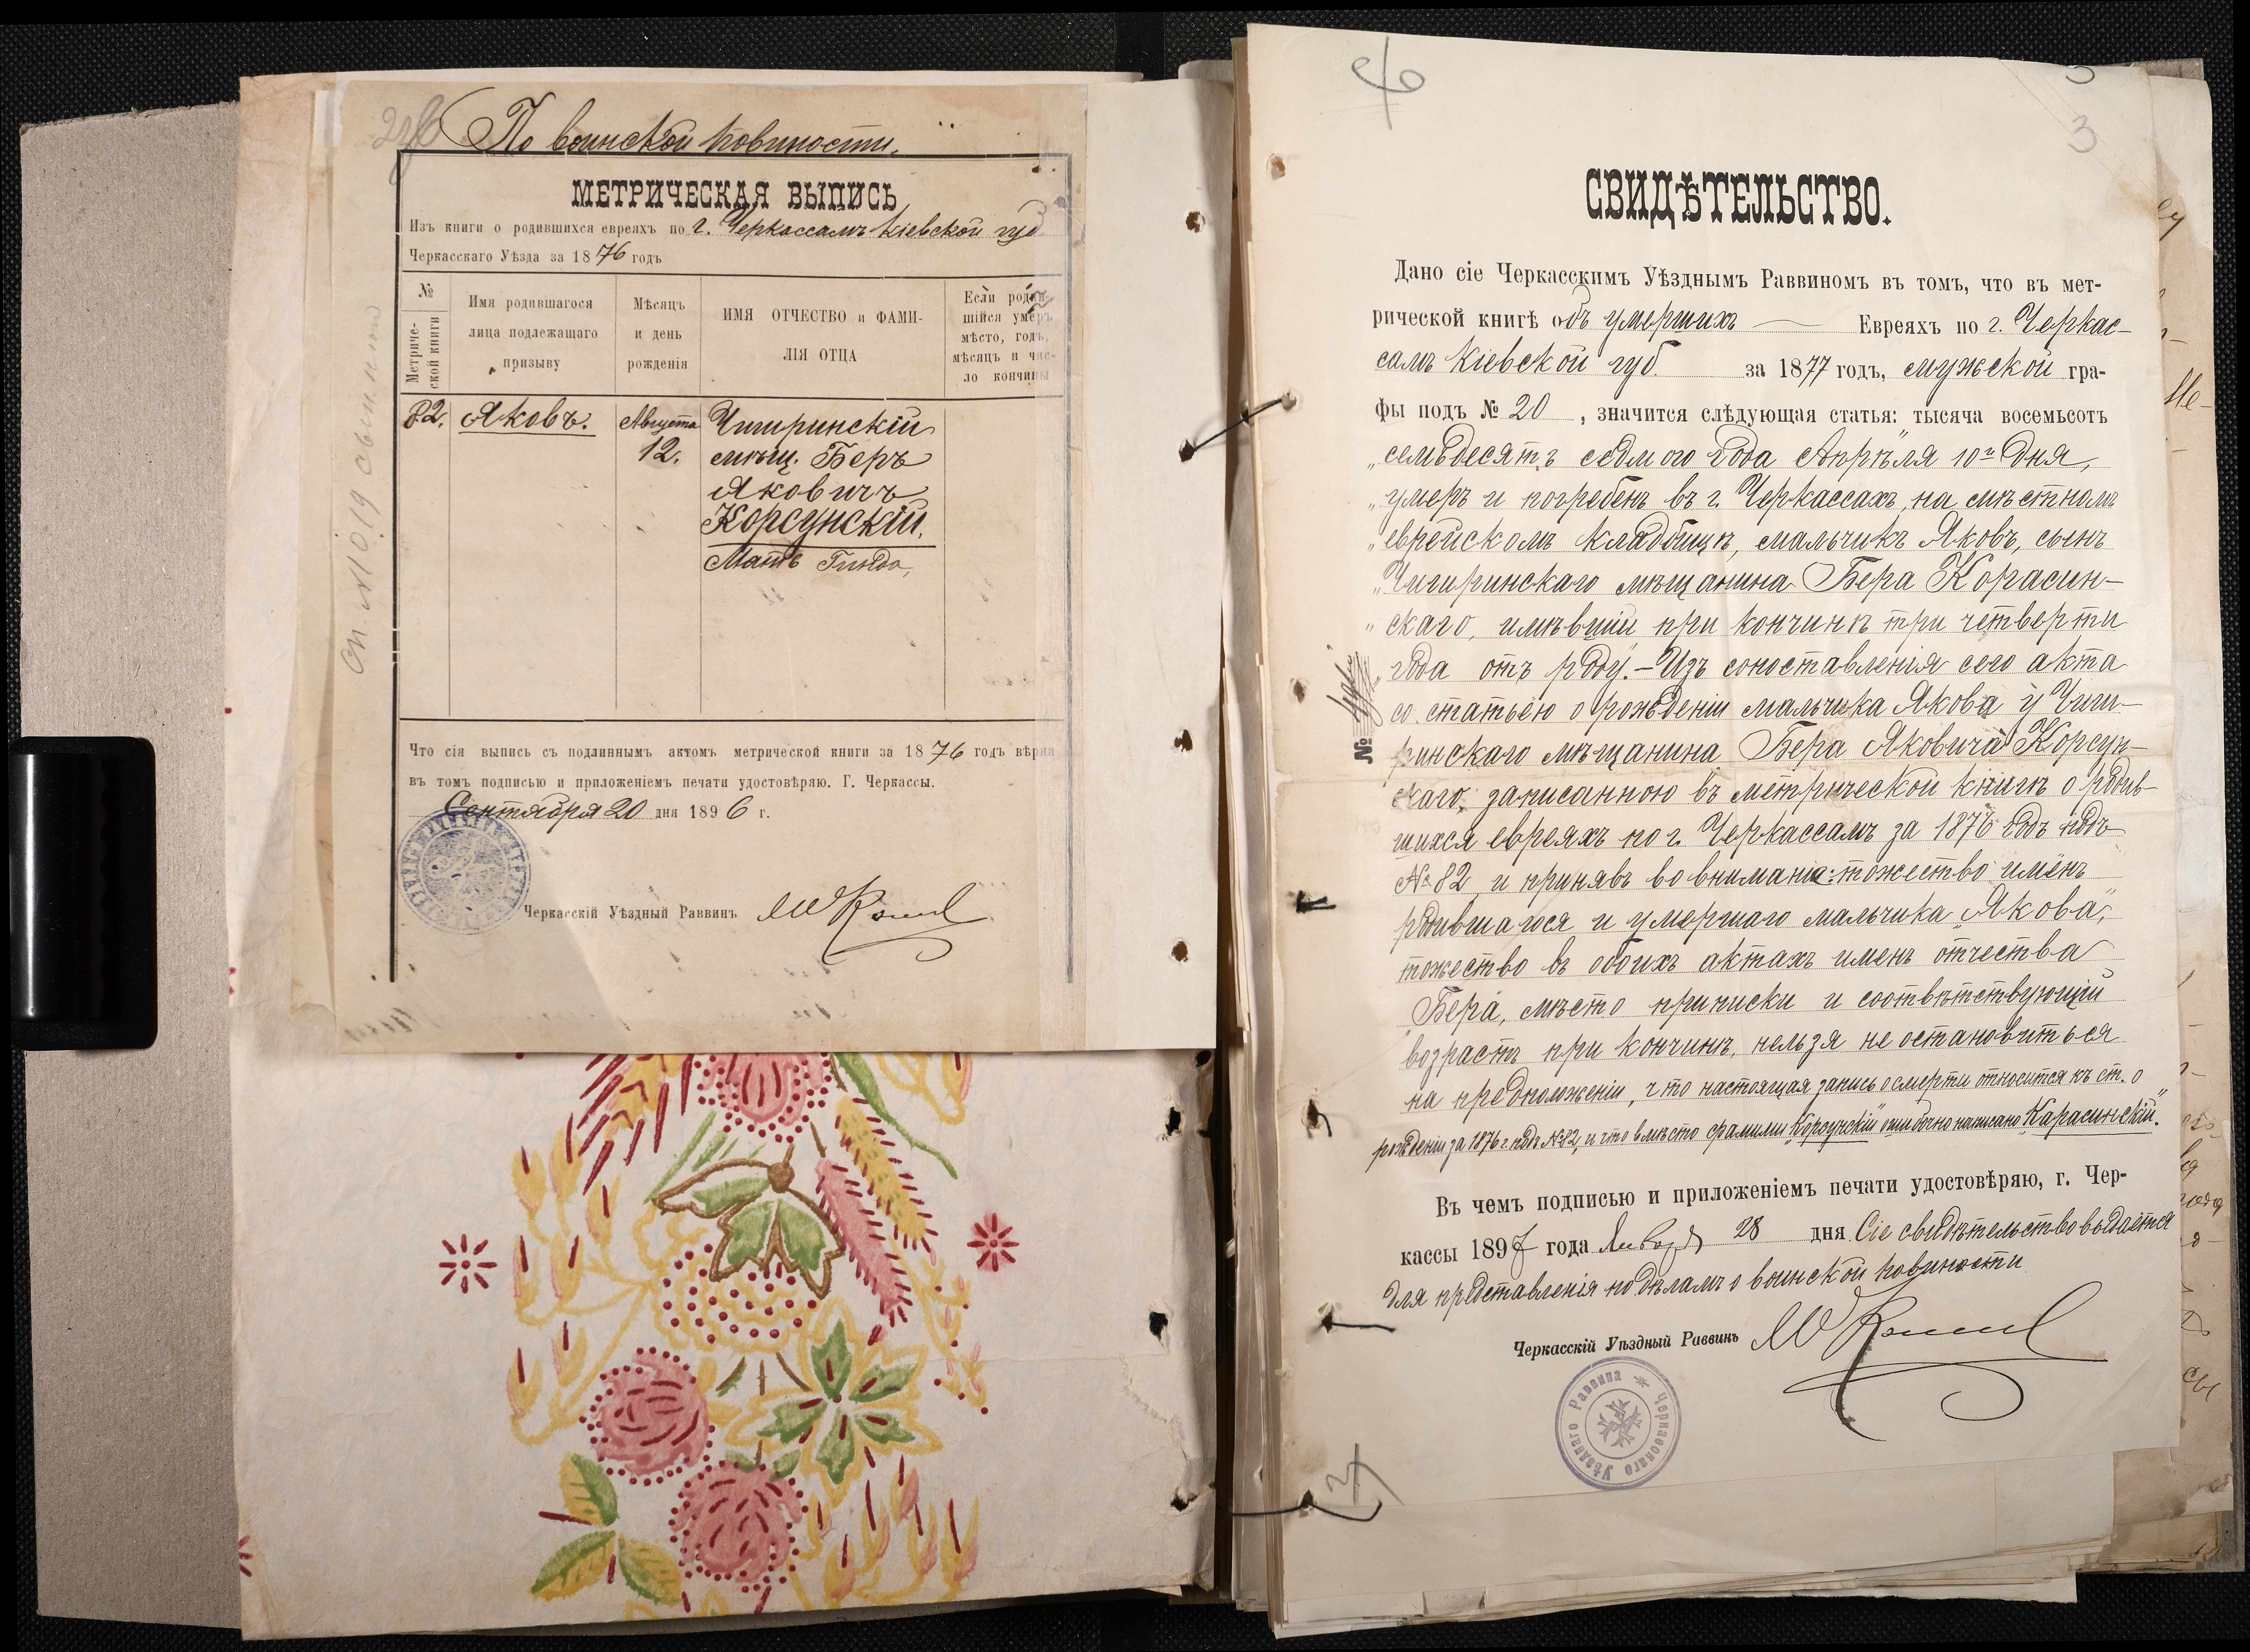 По воинской повиности.
МЕТРИЧЕСКАЯ ВЫПИСЬ
Изъ книги о родившихся евреяхъ по г. Черкассамъ Кіевской губ
Черкасскаго Уѣзда за 1876 годъ
№ Метриче-ской книги
Имя родившагося лица подлежащаго призыву
Мѣсяцъ и день рожденія
ИМЯ ОТЧЕСТВО и ФАМИ-ЛІЯ ОТЦА
Если родив-шійся умеръ мѣсто, годъ, мѣсяцъ и чис-ло кончины
82. Яковъ. Августа Чигиринскій
12. мѣщ. Беръ
Яковичъ
Корсунскій.
Мать Гинда,
Что сія выпись съ подлиннымъ актомъ метрической книги за 1876 годъ вѣрна
въ томъ подписью и приложеніемъ печати удостовѣряю. Г. Черкассы.
Сентября 20 дня 1896 г.
Черкасскій Уѣздный Раввинъ
3
СВИДѢТЕЛЬСТВО.
Дано сіе Черкасскимъ Уѣзднымъ Раввиномъ въ томъ, что въ мет-
рической книгѣ объ умершихъ — Евреяхъ по г. Черкас-
самъ Кіевской губ. за 1877 годъ, мужской гра-
фы подъ № 20, значится слѣдующая статья: тысяча восемьсотъ
„семьдесятъ седмого года Апрѣля 10го дня,
„умеръ и погребенъ въ г. Черкассахъ, на мѣстномъ
„еврейскомъ кладбищѣ, мальчикъ Яковъ, сынъ
„Чигиринскаго мѣщанина Бера Корасин-
„скаго, имѣвшій при кончинѣ три четверти
„года отъ роду. – Изъ сопоставленія сего акта
со статьёю о рожденіи мальчика Якова у Чиги-
ринскаго мѣщанина Бера Яковича Корсун-
скаго, записанною въ метрической книгѣ о родив-
шихся евреяхъ по г. Черкассамъ за 1876 годъ подъ
№ 82 и принявъ во вниманіе: тожество имёнъ
родившагося и умершаго мальчика „Якова",
тожество въ обоихъ актахъ именъ отчества
Бера, мѣсто приписки и соотвѣтствующій
возрастъ при кончинѣ, нельзя не остановиться
на предположеніи, что настоящая запись о смерти относится къ ст. о
рожденіи за 1876 г. подъ № 82, и что вмѣсто фамиліи „Корсунскій" ошибочно написано „Карасинскій".
Въ чемъ подписью и приложеніемъ печати удостовѣряю, г. Чер-
кассы 1897 года Января 28 дня Сіе свидѣтельство выдается
для представленія по дѣламъ о воинской повиности
Черкасскій Уѣздный Раввинъ
Черкасскаго Уѣзднаго Раввина
№